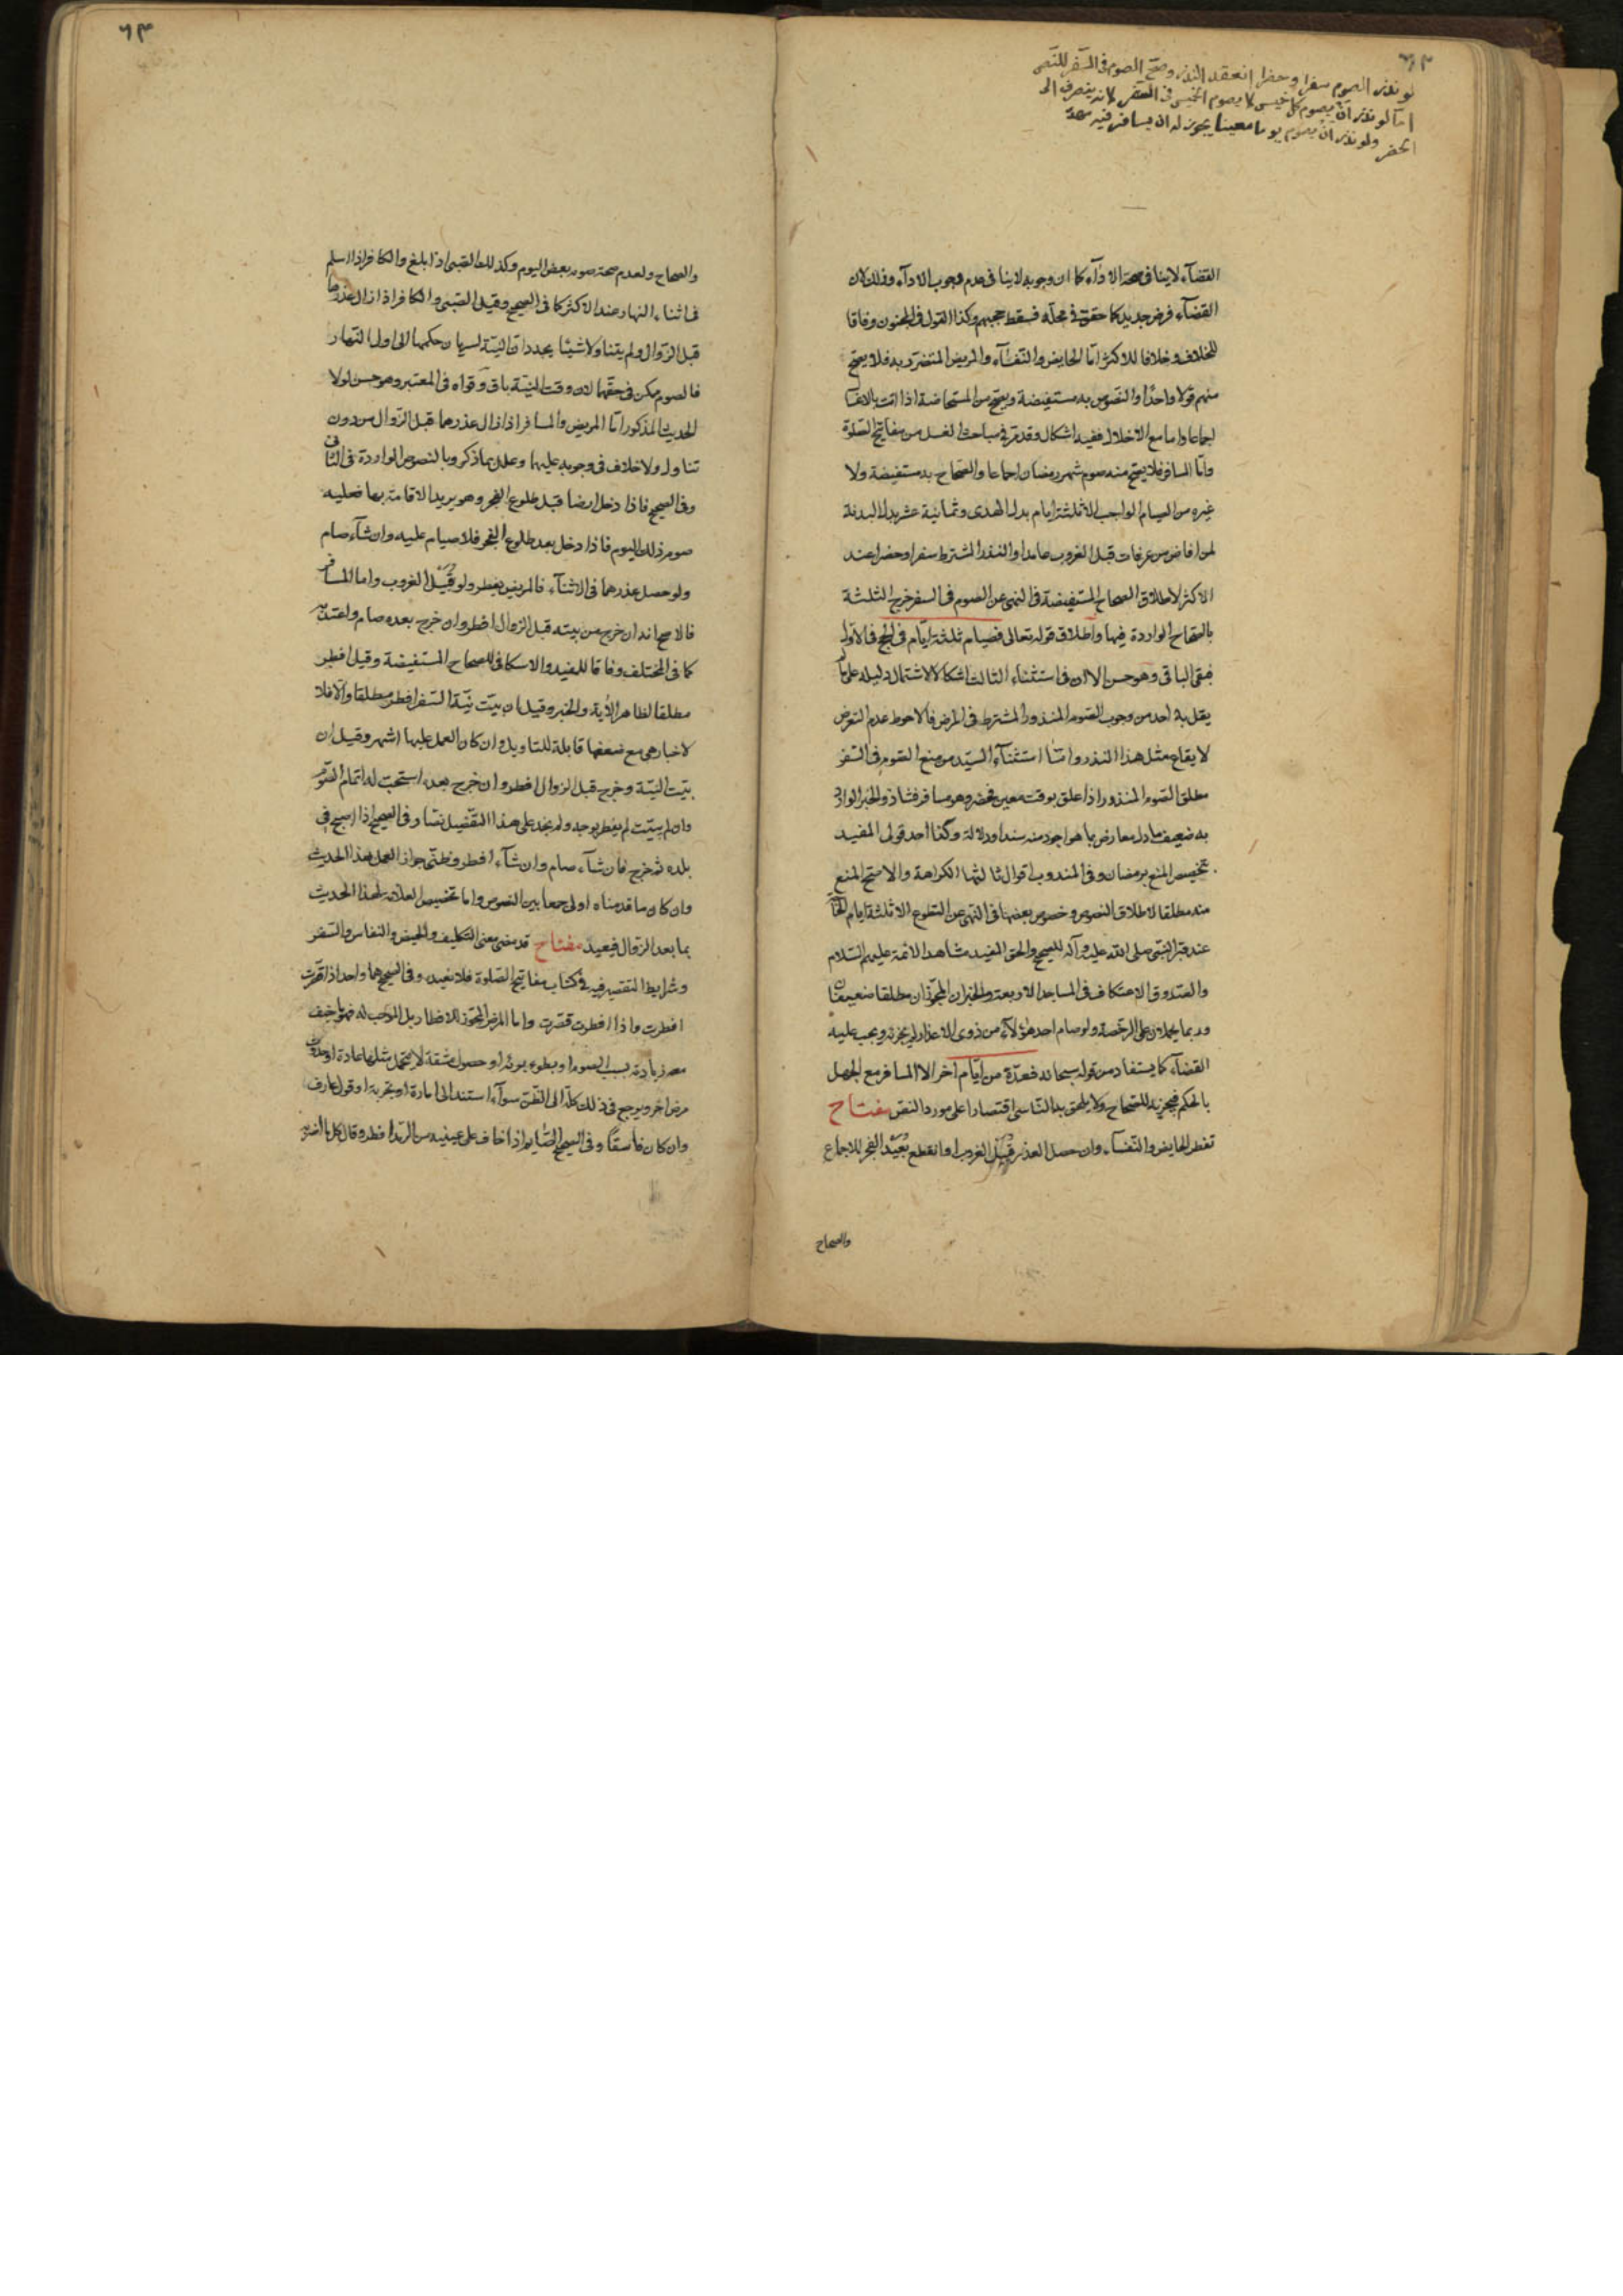 ٦٣
لو نذر الصوم سفرا وحضرا انعقد النذر وصح الصوم فى السفر للنص
اما لو نذر ان يصوم كل خميس لا يصوم الخميس فى السفر لانه ينصرف الى
الحضر ولو نذر ان يصوم يوما معينا يجوز له ان يسافر فيه
القضآء لا ينافى صحة الادآء كما ان وجوبه لا ينافى عدم وجوب الادآء وذلك لان
القضآء فرض جديد كما حقق فى محله فسقط حججهم وكذا القول فى المجنون وفاقا
للخلاف وخلافا للاكثر امّا الحايض والنفسآء والمريض المتضرّر به فلا يصحّ
منهم قولا واحدًا والنصوص به مستفيضة ويصحّ من المستحاضة اذا اتت بالاغسا
اجماعا واما مع الاخلال ففيه اشكال وقد مرّ فى مباحث الغسل من مفاتيح الصلوة
وامّا المسافر فلا يصحّ منه صوم شهر رمضان اجماعا والصحاح به مستفيضة ولا
غيره من الصيام الواجب الا ثلثة ايام بدل الهدى وثمانية عشر بدل البدنة
لمن افاض من عرفات قبل الغروب عامدا والنذر المشترط سفرا وحضرا عند
الاكثر لاطلاق الصحاح المستفيضة فى النهى عن الصوم فى السفر خرج الثلثة
بالصّحاح الواردة فيها واطلاق قوله تعالى فصيام ثلثة ايّام فى الحج فى الاوّل
فبقى الباقى وهو حسن الا ان فى استثناء الثالث اشكالا لاشتمال دليله على ما
يقل به احد من وجوب الصّوم المنذور المشترط فى المرض فالاحوط عدم التعرض
لايقاع مثل هذا النذر وامّا استثنآء السيّد من منع الصّوم فى السّفر
مطلق الصّوم المنذور اذا علق بوقت معين فحضر وهو مسافر فشاذ والخبر الوارد
به ضعيف مادل معارض بما هو اجود منه سندا ودلالة وكذا احد قولى المفيد
تخصيص المنع برمضان وفى المندوب اقوال ثالثها الكراهة والاصحّ المنع
منه مطلقا لاطلاق النصوص وخصوص بعضها فى النّهى عن التطوع الا ثلثة ايام للحاجة
عند قبر النبّى صلى الله عليه وآله للصحيح والحق المفيد مشاهد الائمة عليهم السّلام
والصّدوق الاعتكاف فى المساجد الاربعة والخبران المجوّزان مطلقا ضعيفان
وربما يحملان على الرخصة ولو صام احد هؤلآء من ذوى الاعذار لم يجزه ويجب عليه
القضآء كما يستفاد من قوله سبحانه فعدّة من ايّام اخر الا المسافر مع الجهل
بالحكم فيجزيه للصّحاح ولا يلحق به النّاسى اقتصارا على مورد النصّ مفتاح
تفطر الحايض والنّفسآء وان حصل العذر قُبَيْل الغروب او انقطع بُعَيْد الفجر للاجماع
والصحاح
٦٣
والصحاح ولعدم صحة صوم بعض اليوم وكذلك الصّبى اذا بلغ والكافر اذا اسلم
فى اثناء النهار عند الاكثر كما فى الصحيح وقيل الصّبى والكافر اذا زال عذرهما
قبل الزوال ولم يتناولا شيئا يجددان النيّة لسريان حكمها الى اول النّهار
فالصوم ممكن فى حقّهما لان وقت النيّة باق وقواه فى المعتبر وهو حسن لولا
الحديث المذكور امّا المريض والمسافر اذا زال عذرهما قبل الزّوال من دون
تناول ولا خلاف فى وجوبه عليهما وعلل بما ذكر وبالنصوص الواردة فى الثانى
وفى الصحيح فاذا دخل ارضا قبل طلوع الفجر وهو يريد الاقامة بها فعليه
صوم ذلك اليوم فاذا دخل بعد طلوع الفجر فلا صيام عليه وان شآء صام
ولو حصل عذرهما فى الاثنآء فالمريض يفطر ولو قُبَيْل الغروب واما المسافر
فالاصح انه ان خرج من بيته قبل الزوال افطر وان خرج بعده صام واعتدّ به
كما فى المختلف وفاقا للمفيد والاسكافى للصحاح المستفيضة وقيل افطر
مطلقا لظاهر الآية والخبر وقيل ان بيّت نيّة السّفر افطر مطلقا والّا فلا
لاخبار هى مع ضعفها قابلة للتاويل وان كان العمل عليها اشهر وقيل ان
بيّت النيّة وخرج قبل الزوال افطر وان خرج بعده استحبّ له اتمام الصّوم
وان لم يبيّت لم يفطر بوجه ولم نجد على هذا التفصيل نصّا وفى الصحيح اذا اصبح فى
بلده ثم خرج فان شآء صام وان شآء افطر وظنّى جواز العمل بهذا الحديث
وان كان ما قدمناه اولى جمعا بين النصوص واما تخصيص العلّامة لهذا الحديث
بما بعد الزوال فبعيد مفتاح قد مضى معنى التكليف والحيض والنفاس والسّفر
وشرايط التقصير فيه فى كتاب مفاتيح الصّلوة فلا نعيد وفى الصّحيح هما واحد اذا قصّرت
افطرت واذا افطرت قصّرت واما المرض المجوّز للافطار بل الموجب له فهو ما خيف
معه زيادته بسبب الصوم او بطوء برئه او حصول مشقة لا يتحمل مثلها عادة او حدوث
مرض اخر ويرجع فى ذلك كلّه الى الظّن سوآء استند الى امارة او تجربة او قول عارف
وان كان فاسقًا وفى الصحيح الصّايم اذا خاف على عينيه من الرّمد افطر وقال كل ما اضرّ به